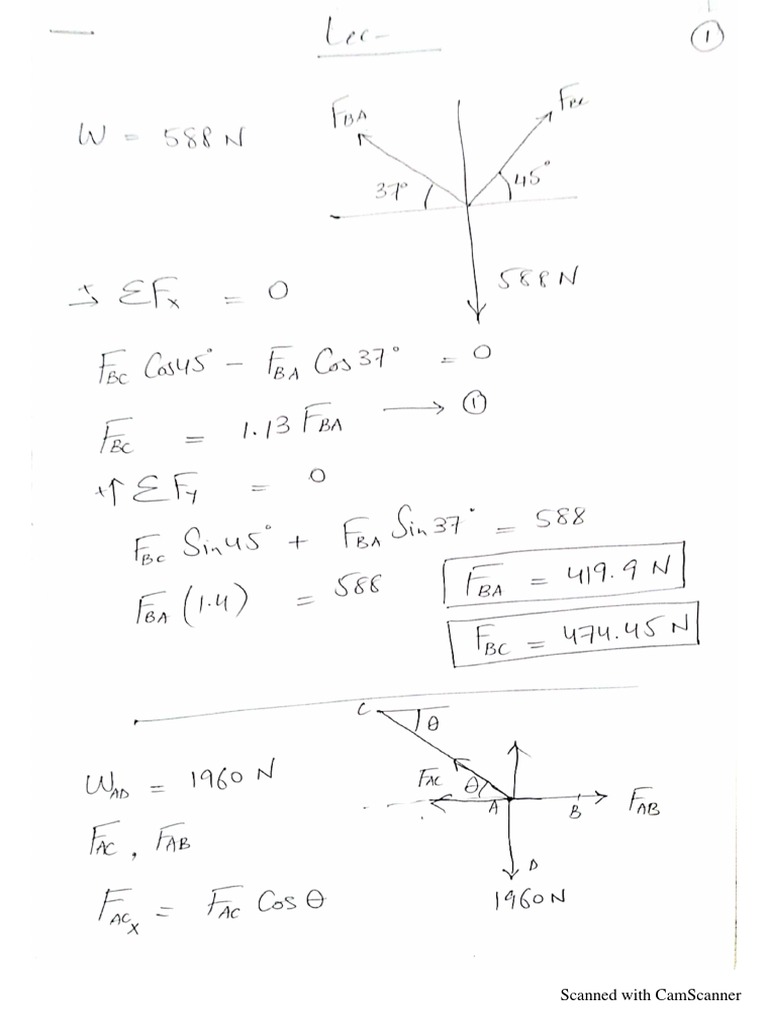 Lec-
1
W = 588 N
F_BA
F_BC
37°
45°
588 N
→+ ΣFx = 0
F_BC Cos45° - F_BA Cos 37° = 0
F_BC = 1.13 F_BA → ①
+↑ ΣFy = 0
F_BC Sin45° + F_BA Sin 37° = 588
F_BA (1.4) = 588
F_BA = 419.9 N
F_BC = 474.45 N
C
θ
W_AD = 1960 N
F_AC
θ
A
B
F_AB
F_AC, F_AB
D
1960 N
F_ACx = F_AC Cos θ
Scanned with CamScanner